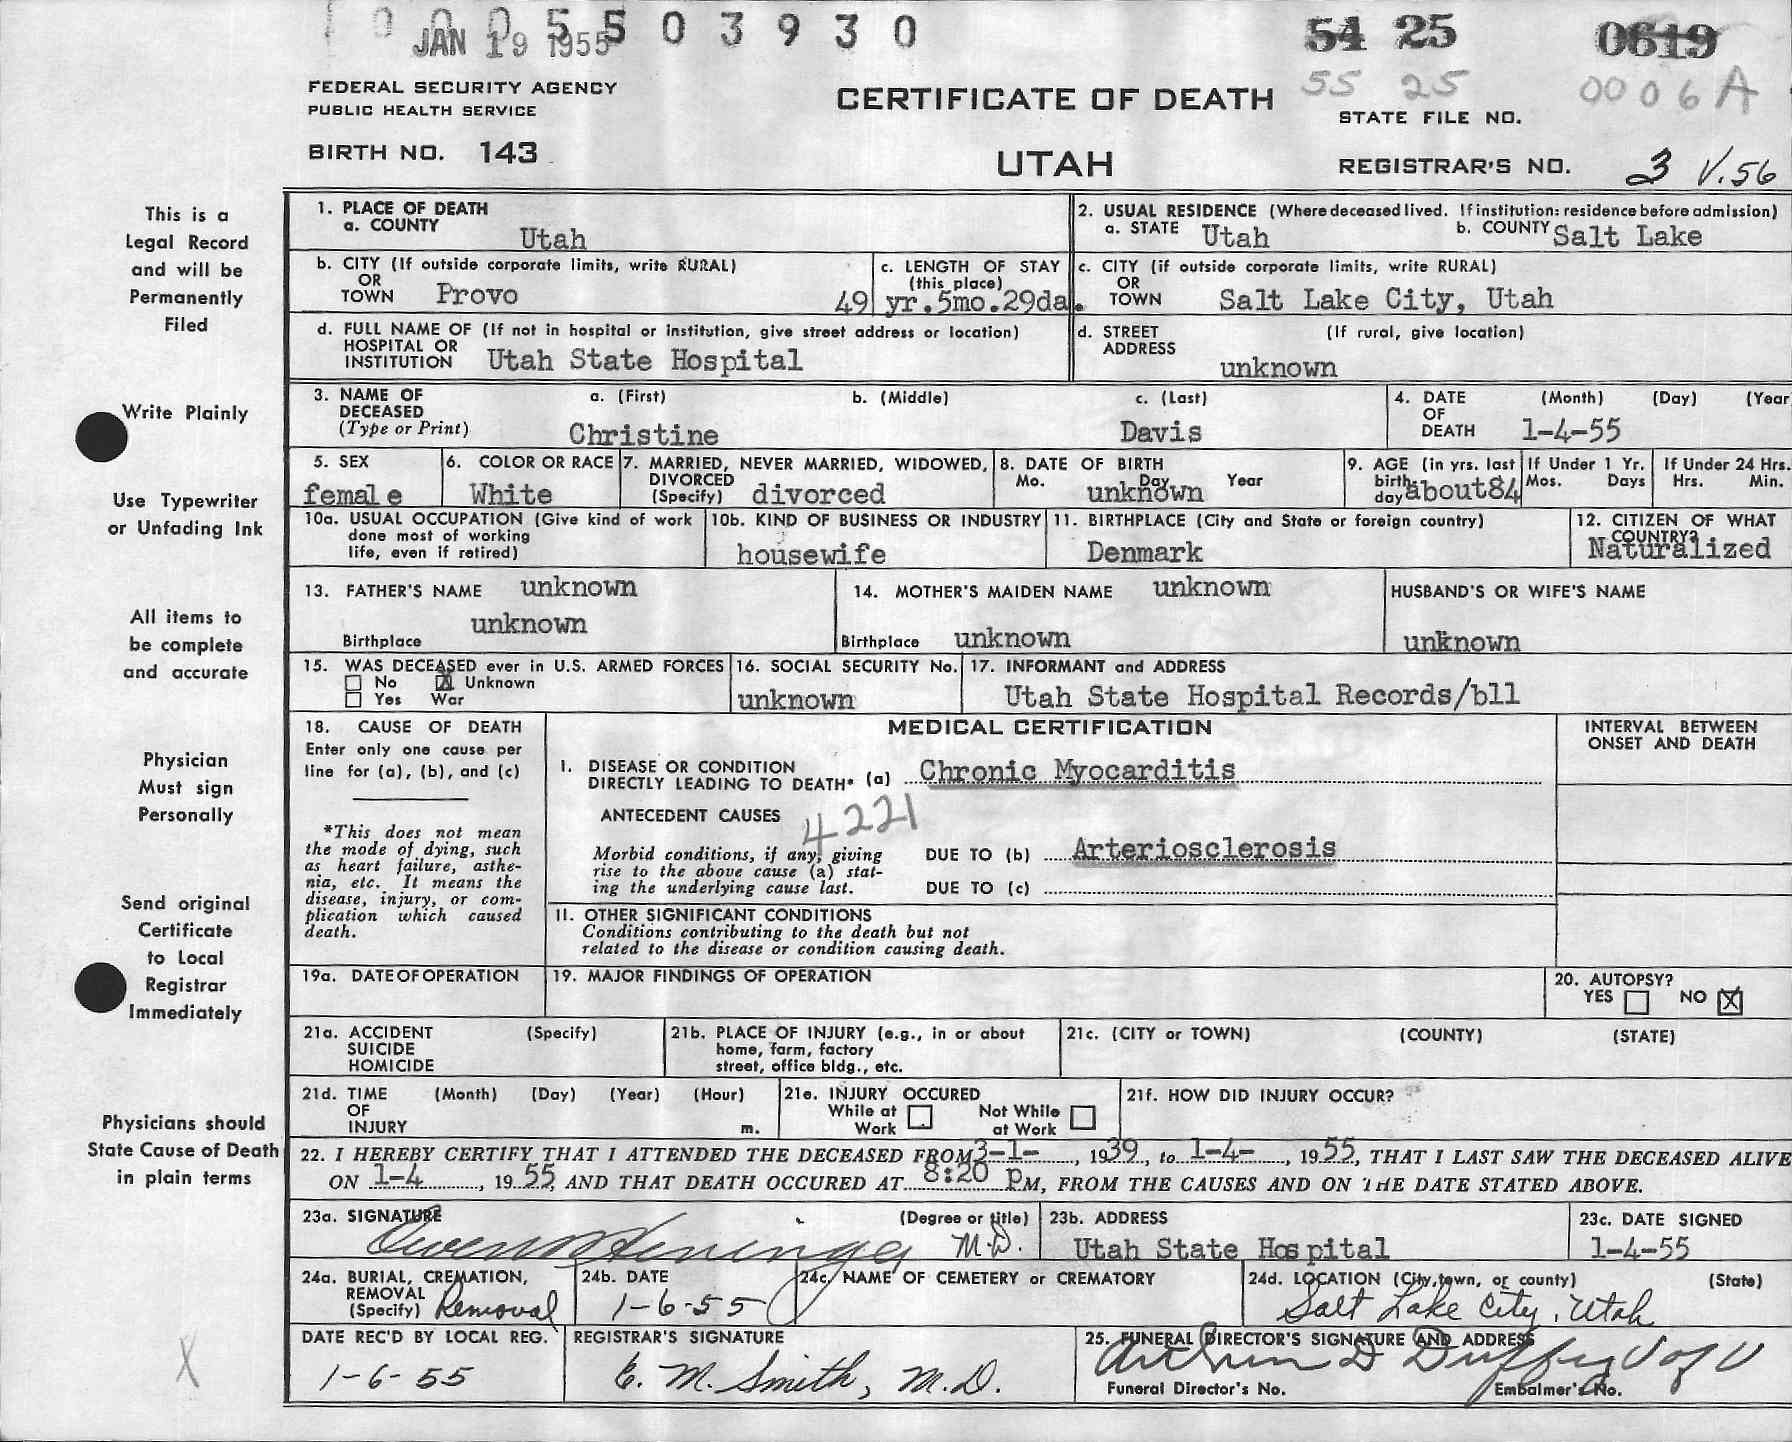 0 0 0 5 5 0 3 9 3 0
JAN 19 1955
54 25 0619
55 25 0006A
FEDERAL SECURITY AGENCY
PUBLIC HEALTH SERVICE
CERTIFICATE OF DEATH
STATE FILE NO.
BIRTH NO. 143
UTAH
REGISTRAR'S NO. 3 V.56
This is a
Legal Record
and will be
Permanently
Filed
Write Plainly
Use Typewriter
or Unfading Ink
All items to
be complete
and accurate
Physician
Must sign
Personally
Send original
Certificate
to Local
Registrar
Immediately
Physicians should
State Cause of Death
in plain terms
X
1. PLACE OF DEATH
a. COUNTY Utah
2. USUAL RESIDENCE (Where deceased lived. If institution: residence before admission)
a. STATE Utah b. COUNTY Salt Lake
b. CITY (If outside corporate limits, write RURAL)
OR
TOWN Provo
c. LENGTH OF STAY
(this place)
49 yr.5mo.29da.
c. CITY (if outside corporate limits, write RURAL)
OR
TOWN Salt Lake City, Utah
d. FULL NAME OF (If not in hospital or institution, give street address or location)
HOSPITAL OR
INSTITUTION Utah State Hospital
d. STREET (If rural, give location)
ADDRESS
unknown
3. NAME OF
DECEASED
(Type or Print)
a. (First) b. (Middle) c. (Last)
Christine Davis
4. DATE (Month) (Day) (Year
OF
DEATH 1-4-55
5. SEX
female
6. COLOR OR RACE
White
7. MARRIED, NEVER MARRIED, WIDOWED,
DIVORCED
(Specify) divorced
8. DATE OF BIRTH
Mo. Day Year
unknown
9. AGE (in yrs. last
birth-
day) about84
If Under 1 Yr.
Mos. Days
If Under 24 Hrs.
Hrs. Min.
10a. USUAL OCCUPATION (Give kind of work
done most of working
life, even if retired)
10b. KIND OF BUSINESS OR INDUSTRY
housewife
11. BIRTHPLACE (City and State or foreign country)
Denmark
12. CITIZEN OF WHAT
COUNTRY?
Naturalized
13. FATHER'S NAME unknown
Birthplace unknown
14. MOTHER'S MAIDEN NAME unknown
Birthplace unknown
HUSBAND'S OR WIFE'S NAME
unknown
15. WAS DECEASED ever in U.S. ARMED FORCES
No X Unknown
Yes War
16. SOCIAL SECURITY No.
unknown
17. INFORMANT and ADDRESS
Utah State Hospital Records/bll
18. CAUSE OF DEATH
Enter only one cause per
line for (a), (b), and (c)
*This does not mean
the mode of dying, such
as heart failure, asthe-
nia, etc. It means the
disease, injury, or com-
plication which caused
death.
MEDICAL CERTIFICATION
INTERVAL BETWEEN
ONSET AND DEATH
I. DISEASE OR CONDITION
DIRECTLY LEADING TO DEATH* (a) Chronic Myocarditis
ANTECEDENT CAUSES
4221
Morbid conditions, if any, giving
rise to the above cause (a) stat-
ing the underlying cause last.
DUE TO (b) Arteriosclerosis
DUE TO (c)
II. OTHER SIGNIFICANT CONDITIONS
Conditions contributing to the death but not
related to the disease or condition causing death.
19a. DATE OF OPERATION
19. MAJOR FINDINGS OF OPERATION
20. AUTOPSY?
YES NO X
21a. ACCIDENT (Specify)
SUICIDE
HOMICIDE
21b. PLACE OF INJURY (e.g., in or about
home, farm, factory
street, office bldg., etc.
21c. (CITY or TOWN) (COUNTY) (STATE)
21d. TIME (Month) (Day) (Year) (Hour)
OF
INJURY m.
21e. INJURY OCCURED
While at Not While
Work at Work
21f. HOW DID INJURY OCCUR?
22. I HEREBY CERTIFY THAT I ATTENDED THE DECEASED FROM 3-1-, 1939, to 1-4-, 1955, THAT I LAST SAW THE DECEASED ALIVE
ON 1-4, 1955, AND THAT DEATH OCCURED AT 8:20 PM, FROM THE CAUSES AND ON THE DATE STATED ABOVE.
23a. SIGNATURE (Degree or title)
Owen P Heninger M.D.
23b. ADDRESS
Utah State Hospital
23c. DATE SIGNED
1-4-55
24a. BURIAL, CREMATION,
REMOVAL
(Specify) Removal
24b. DATE
1-6-55
24c. NAME OF CEMETERY or CREMATORY
24d. LOCATION (City, town, or county) (State)
Salt Lake City, Utah
DATE REC'D BY LOCAL REG.
1-6-55
REGISTRAR'S SIGNATURE
E. M. Smith, M.D.
25. FUNERAL DIRECTOR'S SIGNATURE AND ADDRESS
Arthur D Duffey U of U
Funeral Director's No. Embalmer's No.